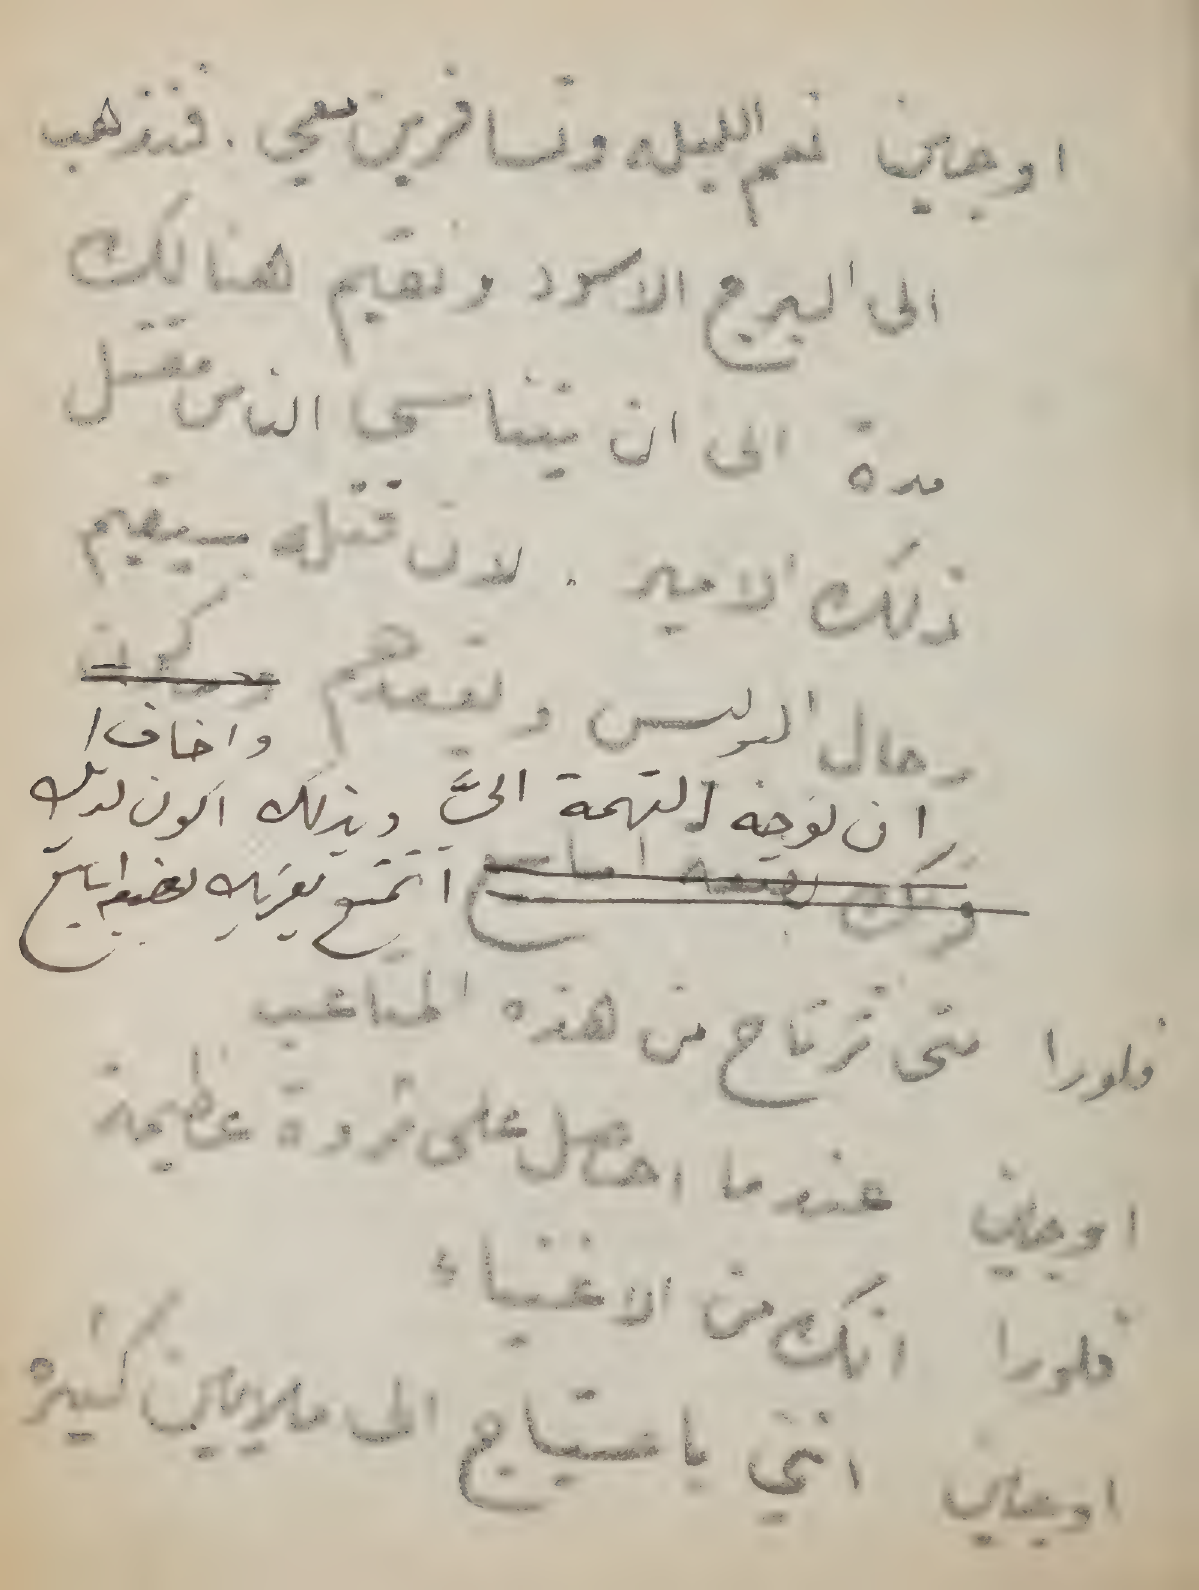 اوجين نعم الليله وتسافرين معي . فنذهب
الى البرج الاسود ونقيم هنالك
مدة الى ان يتناسى الناس مقتل
ذلك الامير . لان قتله سيقيم
رجال البوليس ويقعدهم
واخاف
ان توجه التهمة اليَّ وبذلك اكون لديك
اتمتع بقربك بضعة اسابيع
فلورا متى ترتاح من هذه المتاعب
اوجين عندما احصل على ثروة عظيمة
فلورا انك من الاغنياء
اوجين انني باحتياج الى ملايين كثيره